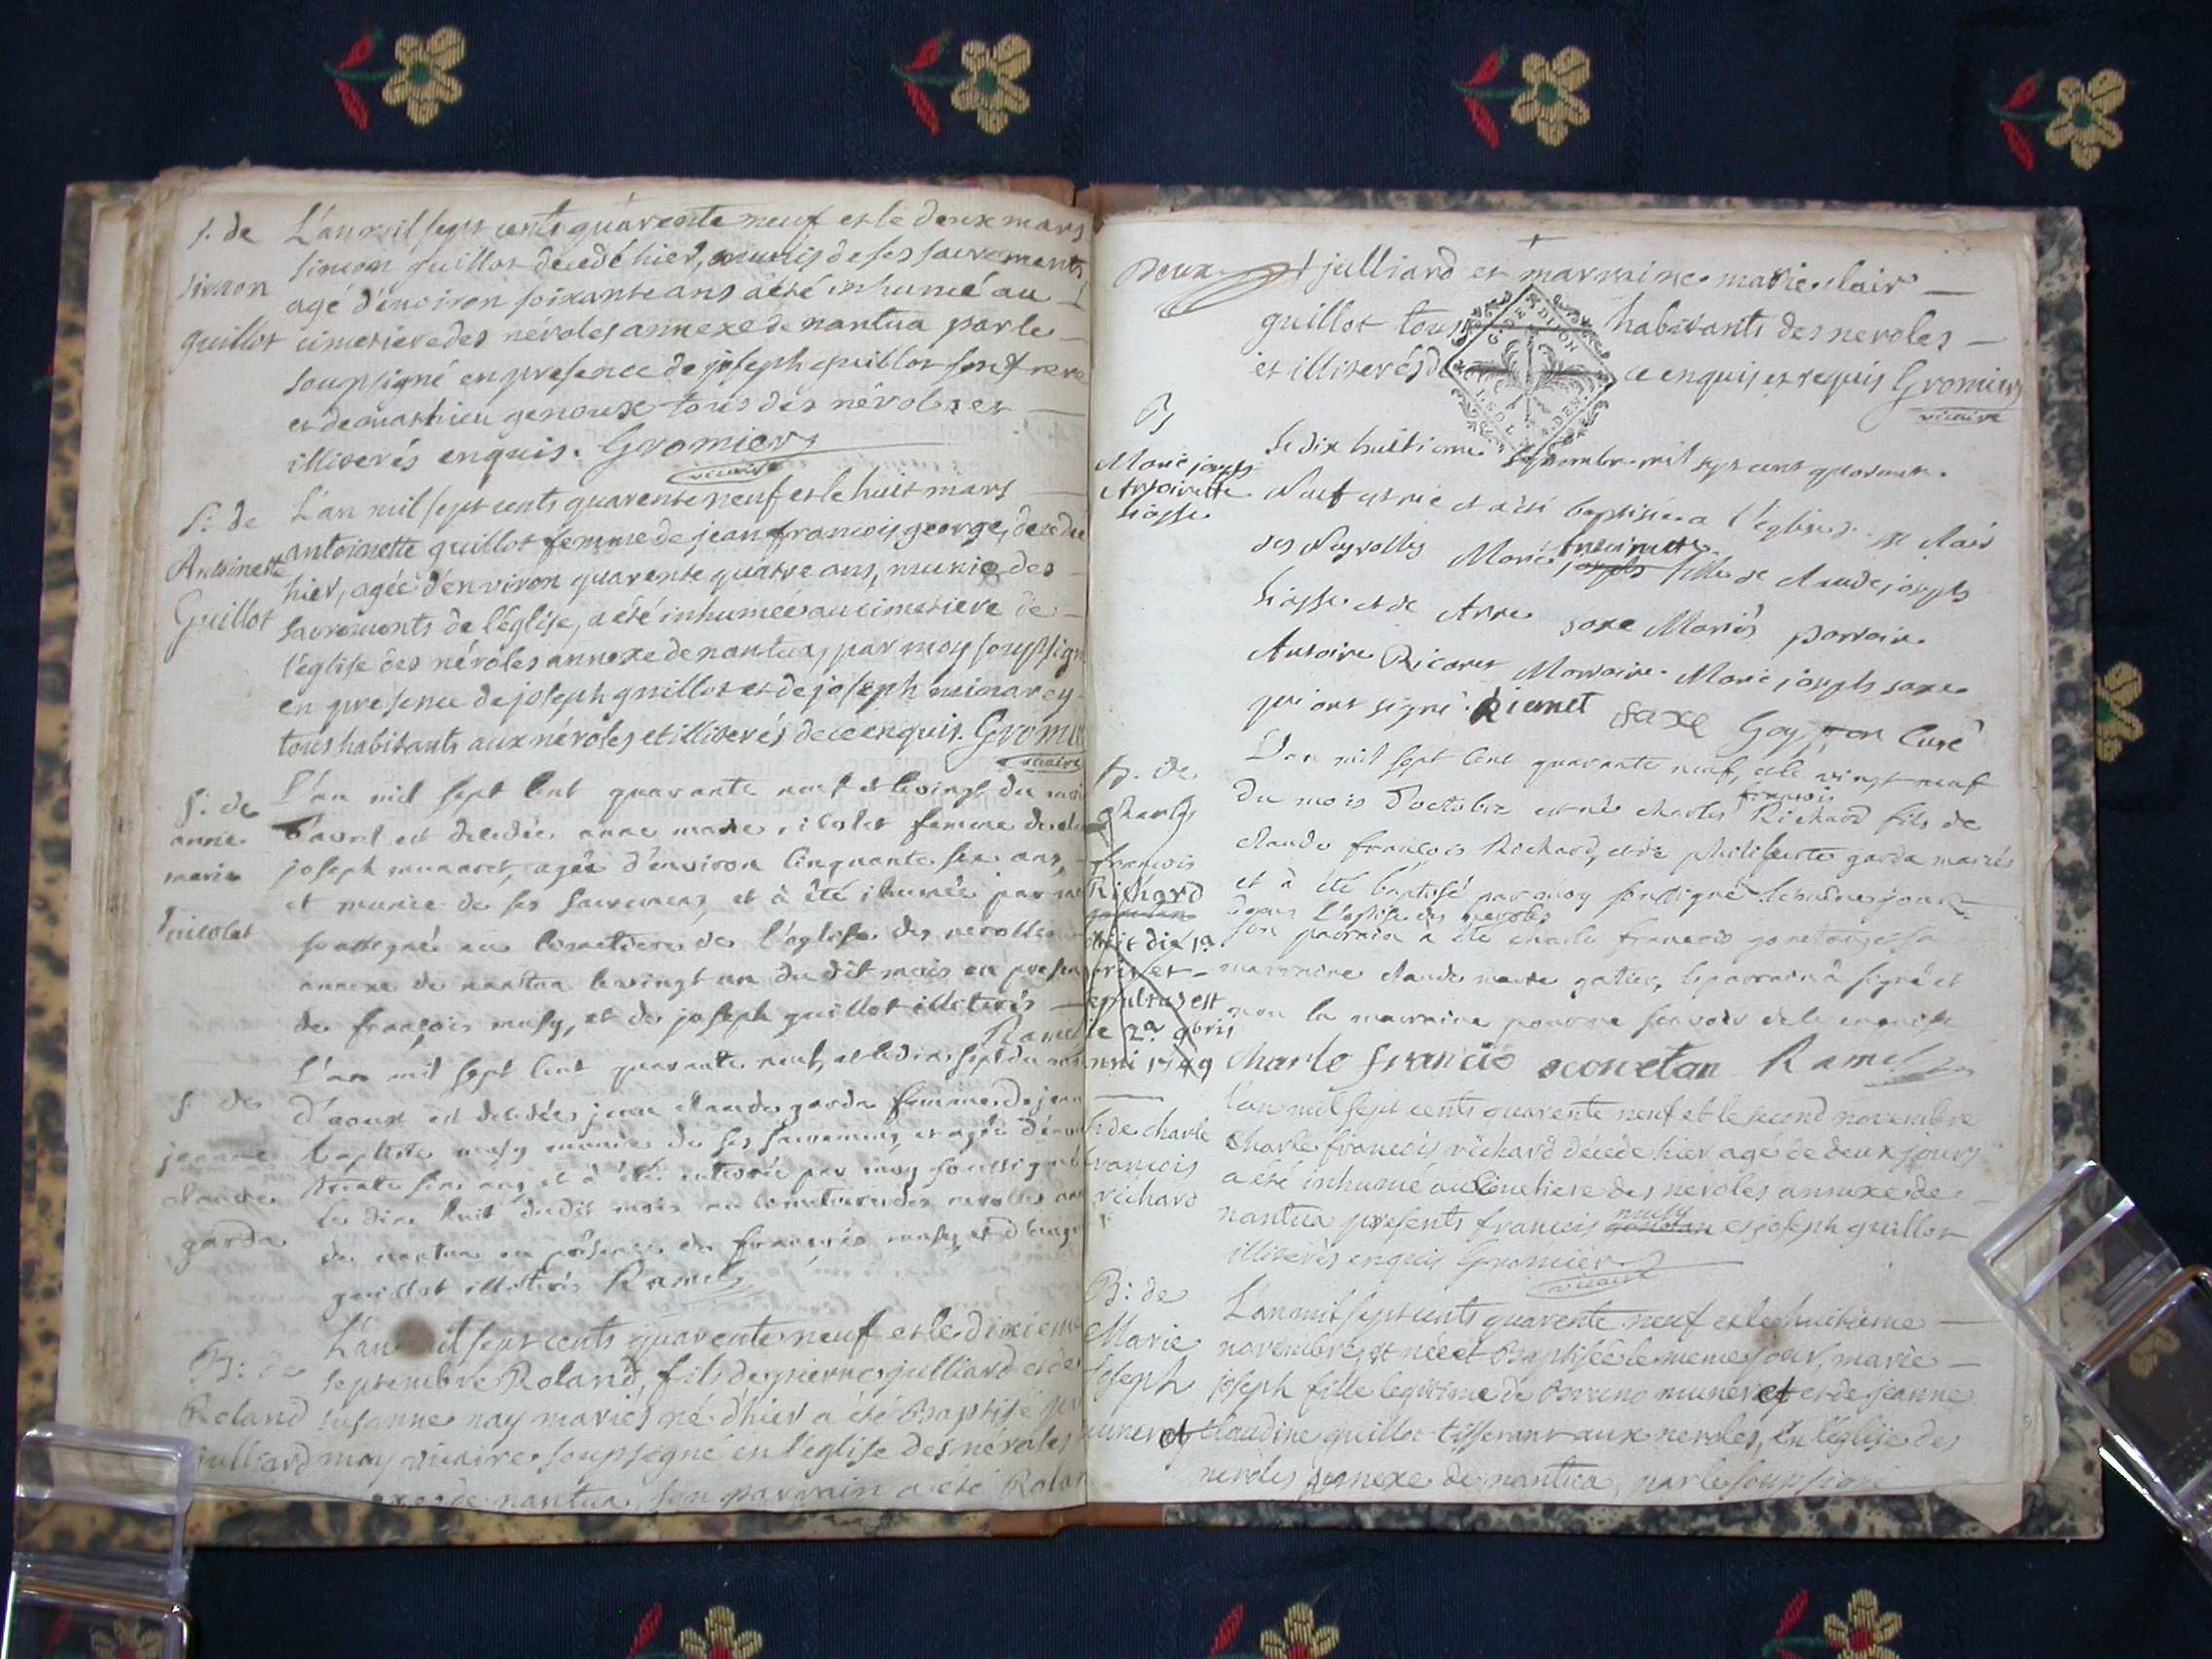 S. de
simon
guillot
L'an mil sept cents quarente neuf et le deux mars
simon guillot decedé hier, munis de ses sacrements
agé d'environ soixante ans a été inhumé au
cimetiere des néroles annexe de nantua par le
soupsigné en presence de joseph guillot son frere
et de mathieu genoux tous des néroles et
illiterés enquis. Gromier
vicaire
S: de
Antoinette
Guillot
L'an mil sept cents quarente neuf et le huit mars
antoinette guillot femme de jean francois george, decedée
hier, agée d'environ quarente quatre ans, munie des
sacrements de l'église, a été inhumeé au cimetiere de
l'église des néroles annexe de nantua, par moy soupsigné
en presence de joseph guillot et de joseph
tous habitants aux néroles et illiterés de ce enquis. Gromier
vicaire
S: de
anne
marie
nicolet
L'an mil sept cent quarante neuf et le vingt du mois
d'avril est decedée anne marie nicolet femme de
joseph munaret, agée d'environ cinquante six ans,
et munie de ses sacremens, et à été ihumée par
soussigné au cimetiere de l'eglise des nerolles
annexe de nantua le vingt un du dit mois en presence
de françois musy, et de joseph guillot illiterés
Ramel
S. de
jeanne
claude
garda
L'an mil sept cent quarante neuf, et le dix sept du mois
d'aoust est decedée jean claude garda femme de jean
baptiste musy munie de ses sacremens, et agée d'environ
trente six ans et à été enterrée par moy soussigné
le dix huit du dit mois au cimetiere des nerolles
de nantua en présence de françois musy, et
guillot illiterés Ramel
B: de
Roland
julliard
L'an mil sept cents quarente neuf et le dixiéme
septembre Roland, fils de pierre julliard et de
susanne nay mariés né d'hier a été Baptisé par
moy vicaire soupsigné en l'église des néroles
annexe de nantua, son parrain a été Roland
Deux
julliard et marraine marie clair
guillot tous habitants des neroles
et illiterés de ce enquis et requis Gromier
vicaire
G. DE DIJON
B
Marie joseph
Antoinette
Liasse
Le dix huitieme septembre mil sept cent quarante
Neuf est née et a été baptisée a l'église de St Clair
des Neyrolles Marie joseph antoinette fille de claude joseph
Liasse et de Anne saxe Mariés parrain
Antoine Ricaret Marraine Marie joseph saxe
qui ont signé saxe Goy Curé
B. de
charles
françois
Richard
L'an mil sept cent quarante neuf, et le vingt neuf
du mois d'octobre est né charles françois Richard fils de
claude françois Richard, et de philiberte garda mariés
et à été baptisé par moy soussigné le même jour
dans l'eglise des neroles
son parrain à été charle françois gonetan et sa
marraine claude marie galier, le parrain à signé et
non la marraine pour ne sçavoir de ce enquise
charle francio sconetan Ramel
S. de charle
francois
richard
L'an mil sept cents quarente neuf et le second novembre
charle francois richard décédé hier agé de deux jours
a été inhumé au cimetiere des néroles annexe de
nantua presents francois gonetan musy et joseph guillot
illiterés enquis Gromier
vicaire
B: de
Marie
joseph
muneret
L'an mil sept cents quarente neuf et le huitieme
novembre, est née et Baptisée le meme jour, marie
joseph fille legitime de Bruno muneret et de jeanne
claudine guillot tisserant aux neroles, en l'église des
neroles annexe de nantua, par le soupsigné